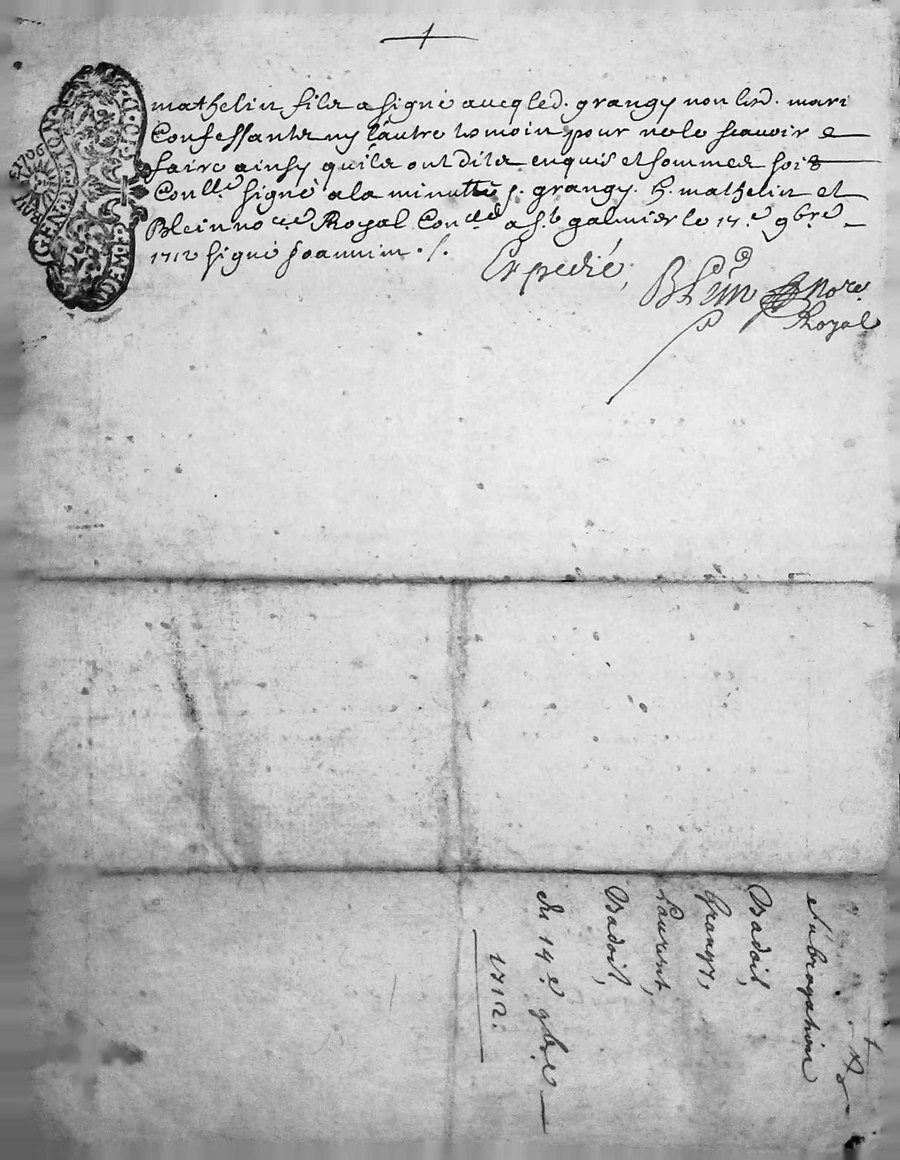 mathelin fils a signé avecq led. grangy non lesd. mari
Confessante ny l'autre temoin pour ne le scavoir
faire ainsy quils ont dits enquis et sommes soit
Conllé signé a la minutte grangy. mathelin et
Blein Royal a St galmier le 17.e 9bre
1712 signé Joannin
Expedié,
Blein Nore
Royal
GEN. LYON
subrogation
Badoil,
Grangy,
Laurent,
Badoil,
du 14.e 9bre
1712.